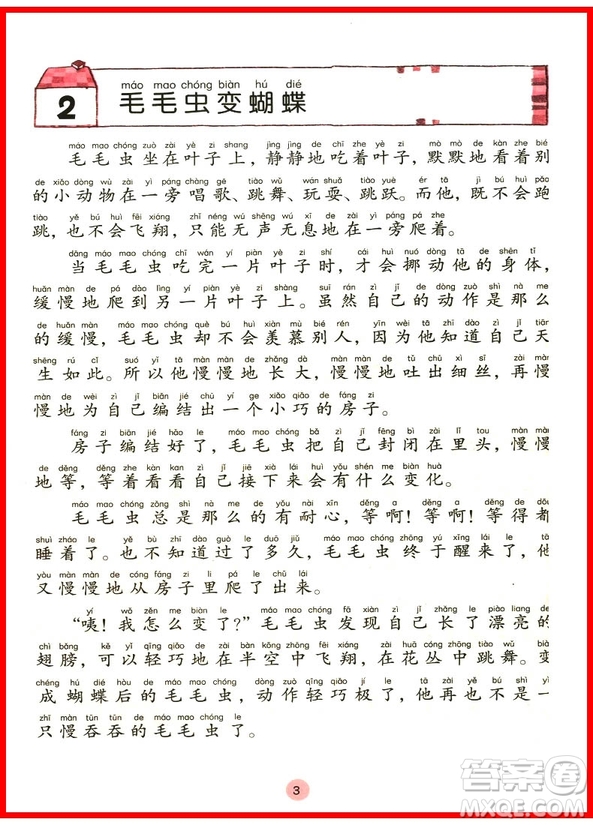 2
máo mao chóng biàn hú dié
毛毛虫变蝴蝶
máo mao chóng zuò zài yè zi shang jìng jìng de chī zhe yè zi mò mò de kàn zhe bié
毛毛虫坐在叶子上，静静地吃着叶子，默默地看着别
de xiǎo dòng wù zài yì páng chàng gē tiào wǔ wán shuǎ tiào yuè ér tā jì bú huì pǎo
的小动物在一旁唱歌、跳舞、玩耍、跳跃。而他，既不会跑
tiào yě bú huì fēi xiáng zhǐ néng wú shēng wú xī de zài yì páng pá zhe
跳，也不会飞翔，只能无声无息地在一旁爬着。
dāng máo mao chóng chī wán yí piàn yè zi shí cái huì nuó dòng tā de shēn tǐ
当毛毛虫吃完一片叶子时，才会挪动他的身体，
huǎn màn de pá dào lìng yí piàn yè zi shang suī rán zì jǐ de dòng zuò shì nà me
缓慢地爬到另一片叶子上。虽然自己的动作是那么
de huǎn màn máo mao chóng què bú huì xiàn mù bié rén yīn wèi tā zhī dào zì jǐ tiān
的缓慢，毛毛虫却不会羡慕别人，因为他知道自己天
shēng rú cǐ suǒ yǐ tā màn màn de màn màn de tǔ chū xì sī zài màn
生如此。所以他慢慢地、慢慢地吐出细丝，再慢
màn de wèi zì jǐ biān jié chū yí gè xiǎo qiǎo de fáng zi
慢地为自己编结出一个小巧的房子。
fáng zi biān jié hǎo le máo mao chóng bǎ zì jǐ fēng bì zài lǐ tou màn màn
房子编结好了，毛毛虫把自己封闭在里头，慢慢
de děng děng zhe kàn kan zì jǐ jiē xià lái huì yǒu shén me biàn huà
地等，等着看看自己接下来会有什么变化。
máo mao chóng zǒng shì nà me de yǒu nài xīn děng a děng a děng de
毛毛虫总是那么的有耐心，等啊！等啊！等得
shuì zháo le yě bù zhī dào guò le duō jiǔ máo mao chóng zhōng yú xǐng lái le
睡着了。也不知道过了多久，毛毛虫终于醒来了，
yòu màn màn de cóng fáng zi li pá le chū lái
又慢慢地从房子里爬了出来。
yí wǒ zěn me biàn le máo mao chóng fā xiàn zì jǐ zhǎng le piào liang de
“咦！我怎么变了？”毛毛虫发现自己长了漂亮的
chì bǎng kě yǐ qīng qiǎo de zài bàn kōng zhōng fēi xiáng zài huā cóng zhōng tiào wǔ
翅膀，可以轻巧地在半空中飞翔，在花丛中跳舞。
chéng hú dié hòu de máo mao chóng dòng zuò qīng qiǎo jí le tā zài yě bú shì
成蝴蝶后的毛毛虫，动作轻巧极了，他再也不是一
zhī màn tūn tūn de máo mao chóng le
只慢吞吞的毛毛虫了。
3
答案圈
MXQE.COM